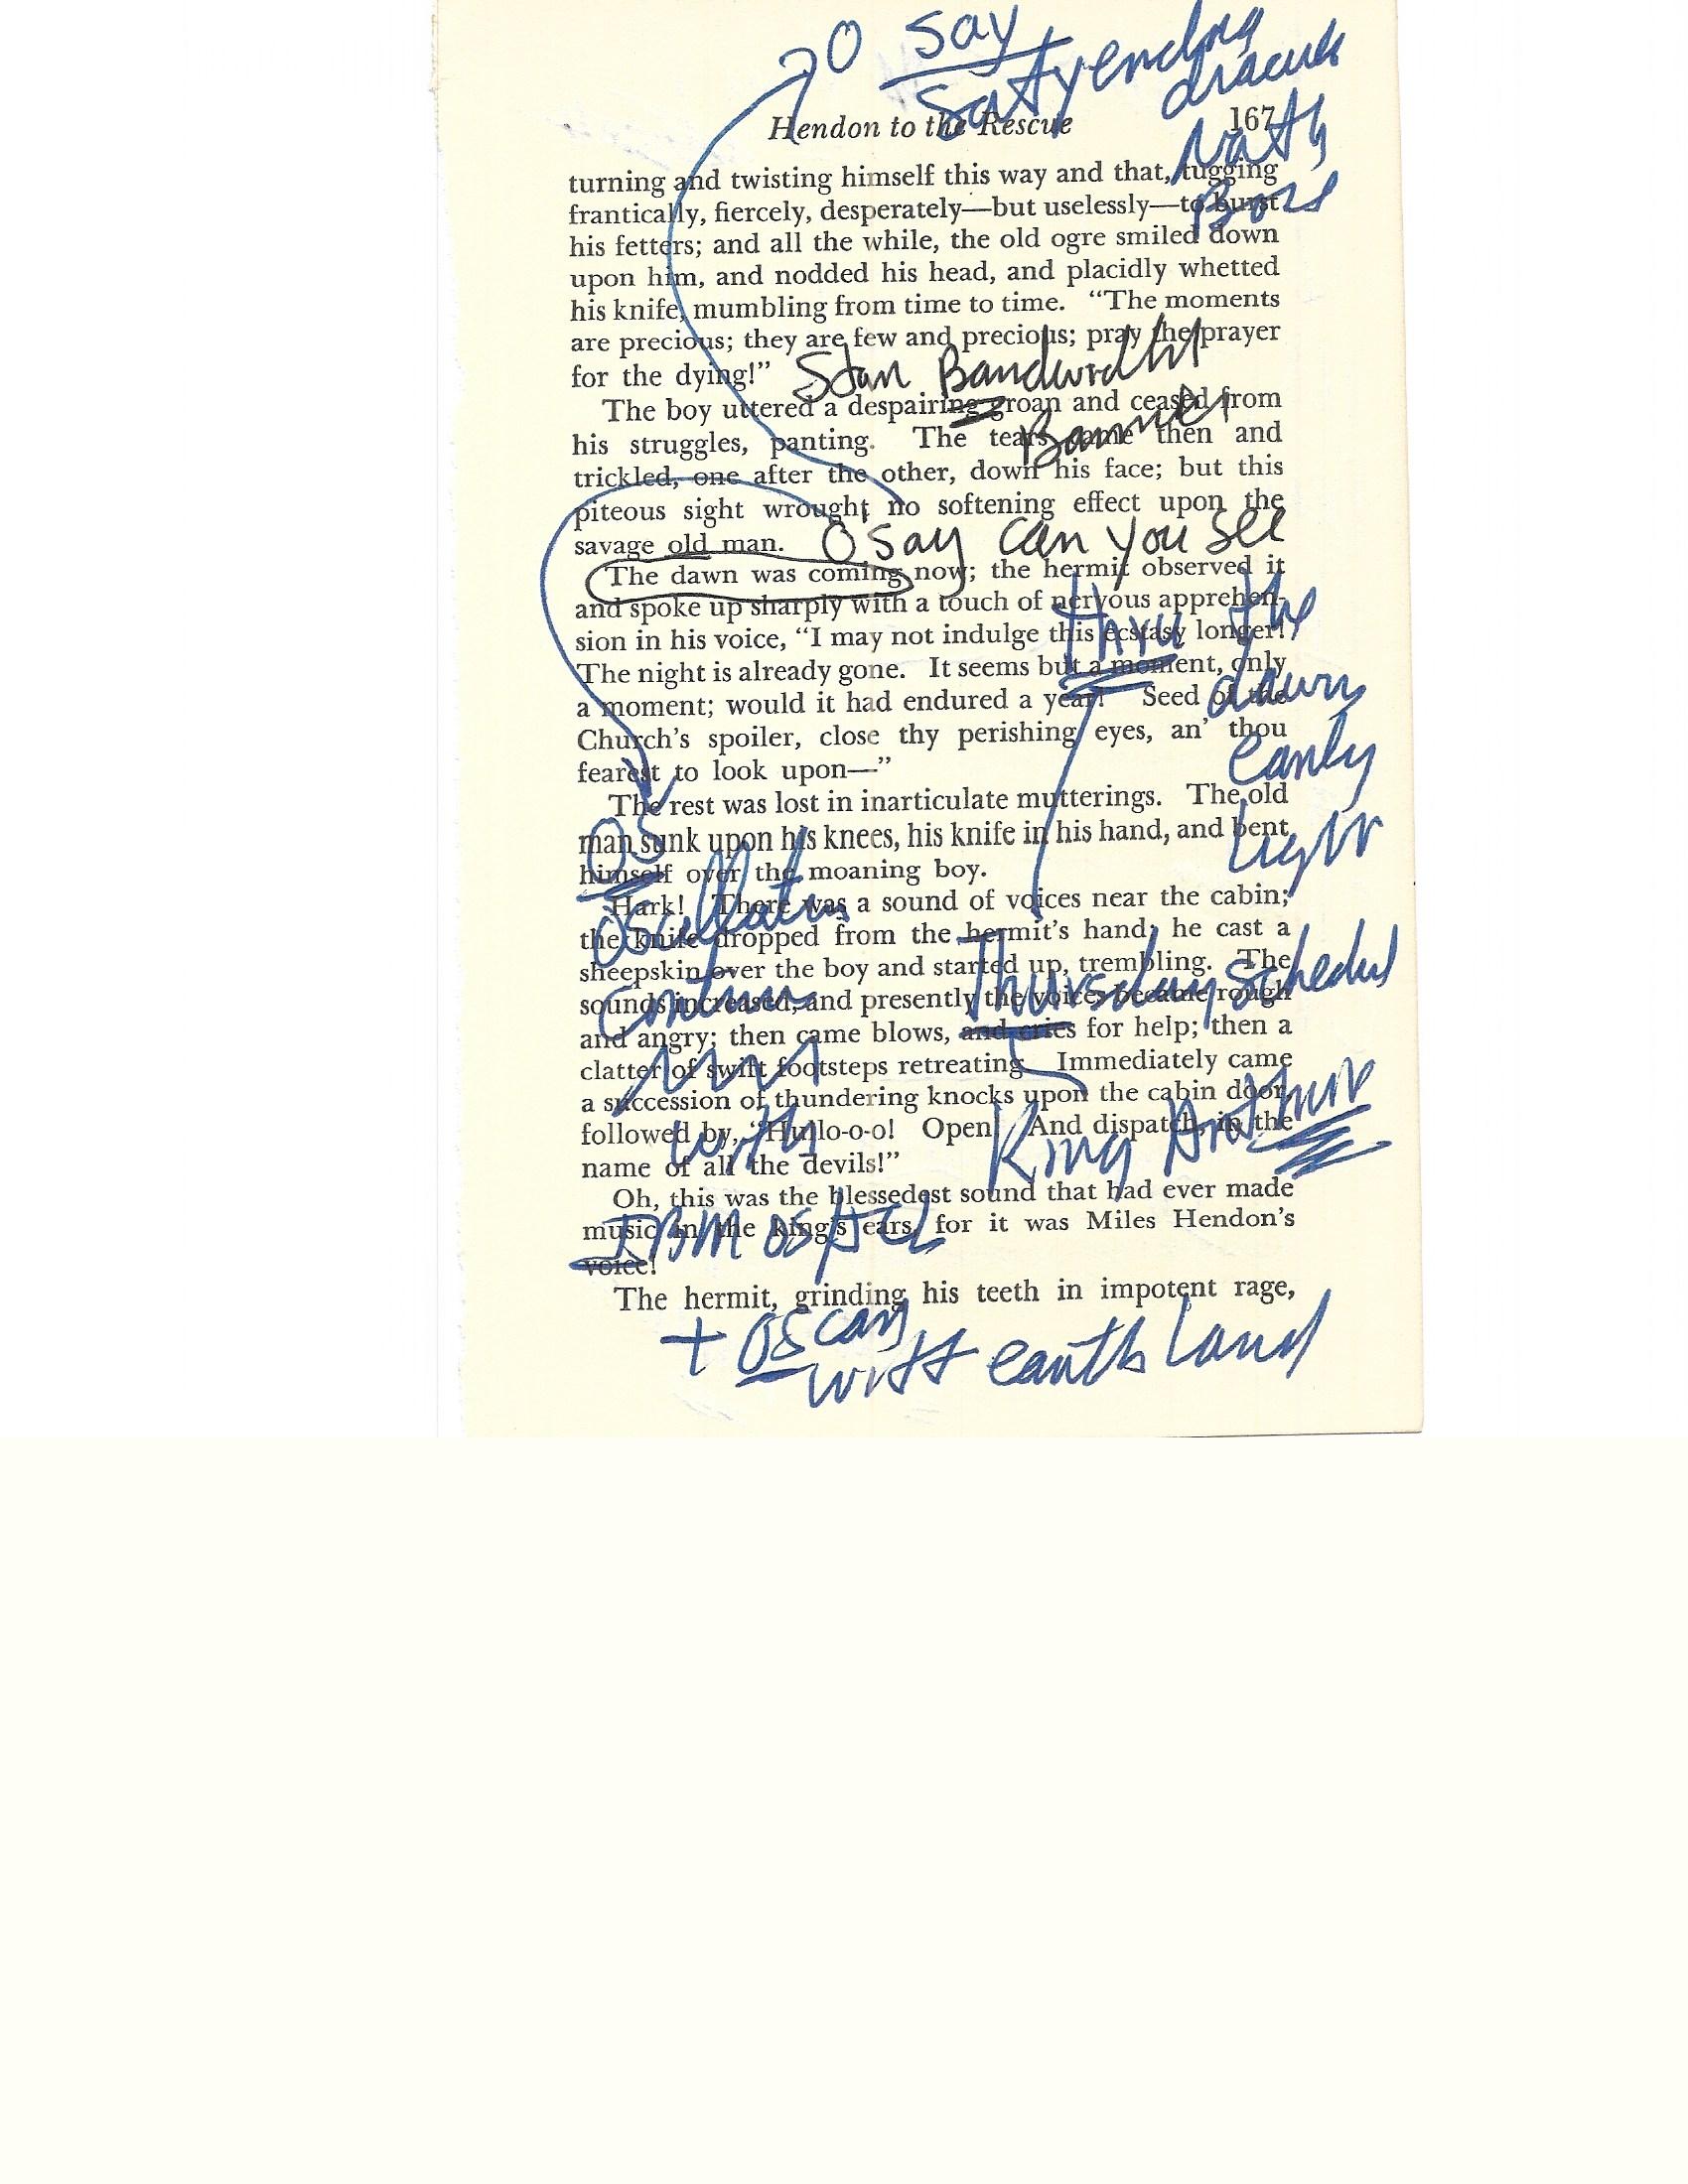 O say
Satyendra
dracula
Hendon to the Rescue 167
Nath
Bose
turning and twisting himself this way and that, tugging
frantically, fiercely, desperately—but uselessly—to burst
his fetters; and all the while, the old ogre smiled down
upon him, and nodded his head, and placidly whetted
his knife, mumbling from time to time. “The moments
are precious; they are few and precious; pray the prayer
for the dying!”
Star Bandwidth
The boy uttered a despairing groan and ceased from
Banner
his struggles, panting. The tears came then and
trickled, one after the other, down his face; but this
piteous sight wrought no softening effect upon the
savage old man.
O say can you see
The dawn was coming now; the hermit observed it
and spoke up sharply with a touch of nervous apprehen-
thru the
sion in his voice, “I may not indulge this ecstasy longer!
The night is already gone. It seems but a moment, only
dawn
a moment; would it had endured a year! Seed of the
Church’s spoiler, close thy perishing eyes, an’ thou
early
fearest to look upon—”
The rest was lost in inarticulate mutterings. The old
OS
light
man sunk upon his knees, his knife in his hand, and bent
himself over the moaning boy.
Hark! There was a sound of voices near the cabin;
the knife dropped from the hermit’s hand; he cast a
sheepskin over the boy and started up, trembling. The
Thursday schedul
sounds increased, and presently the voices became rough
and angry; then came blows, and cries for help; then a
clatter of swift footsteps retreating. Immediately came
a succession of thundering knocks upon the cabin door,
followed by, “Hullo-o-o! Open! And dispatch, in the
with
King Arthur
name of all the devils!”
Oh, this was the blessedest sound that had ever made
music in the king’s ears, for it was Miles Hendon’s
IBM OS JCL
voice!
The hermit, grinding his teeth in impotent rage,
+ OScar
with earth land